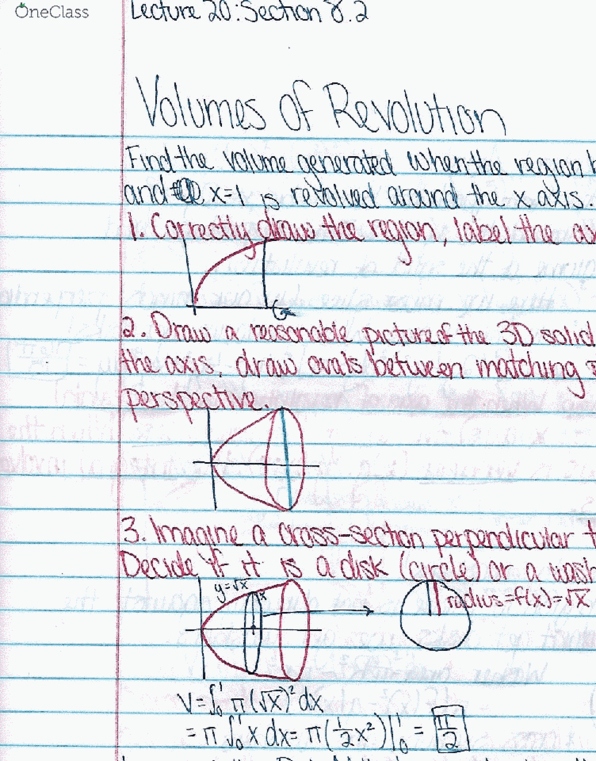 OneClass
Lecture 20: Section 8.2
Volumes of Revolution
Find the volume generated when the region
and x=1 is revolved around the x axis.
1. Correctly draw the region, label the
2. Draw a reasonable picture of the 3D solid
the axis, draw ovals between matching
perspective.
3. Imagine a cross-section perpendicular
Decide if it is a disk (circle) or a
y=√x
radius=f(x)=√x
V=∫₀¹ π(√x)² dx
= π ∫₀¹ x dx = π(½x²)|₀¹ = π/2